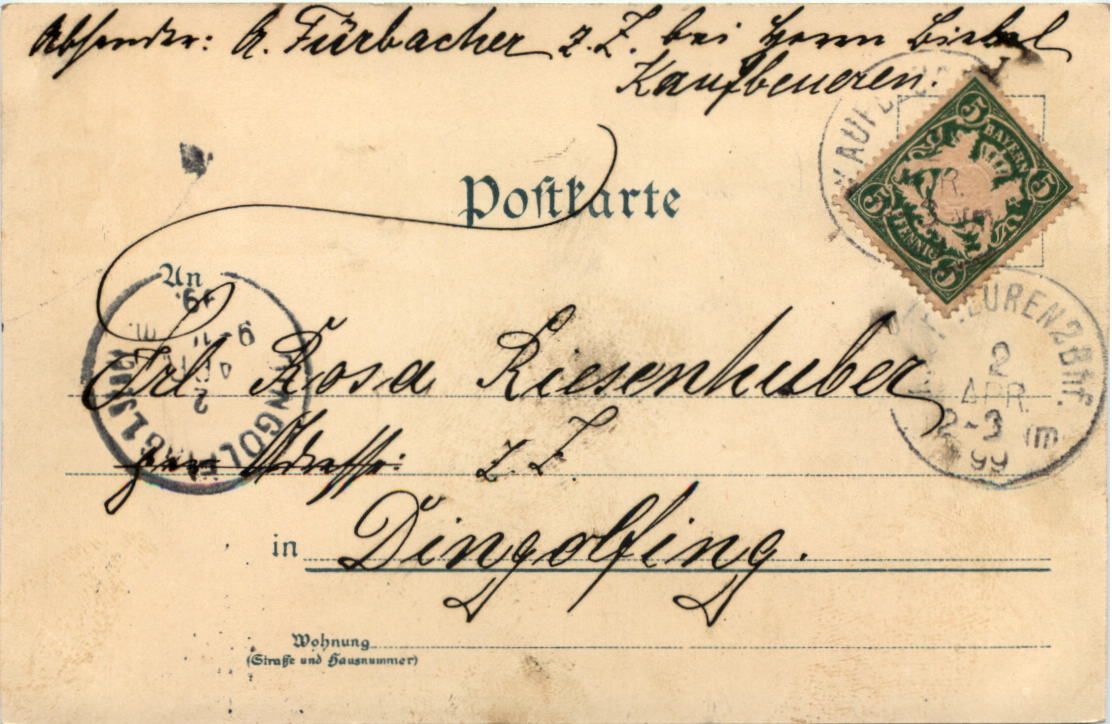 Absender: A. Fürbacher z. Z. bei Herrn Biebel
Kaufbeueren.
5 BAYERN 5
5 PFENNIG 5
Postkarte
An
Frl. Rosa Riesenhuber
KAUFBEUREN 2 Bhf.
2
APR.
2-3 Nm
99
DINGOLFING
2
APR
99
per Adresse: z. Z.
in Dingolfing.
Wohnung
(Straße und Hausnummer)